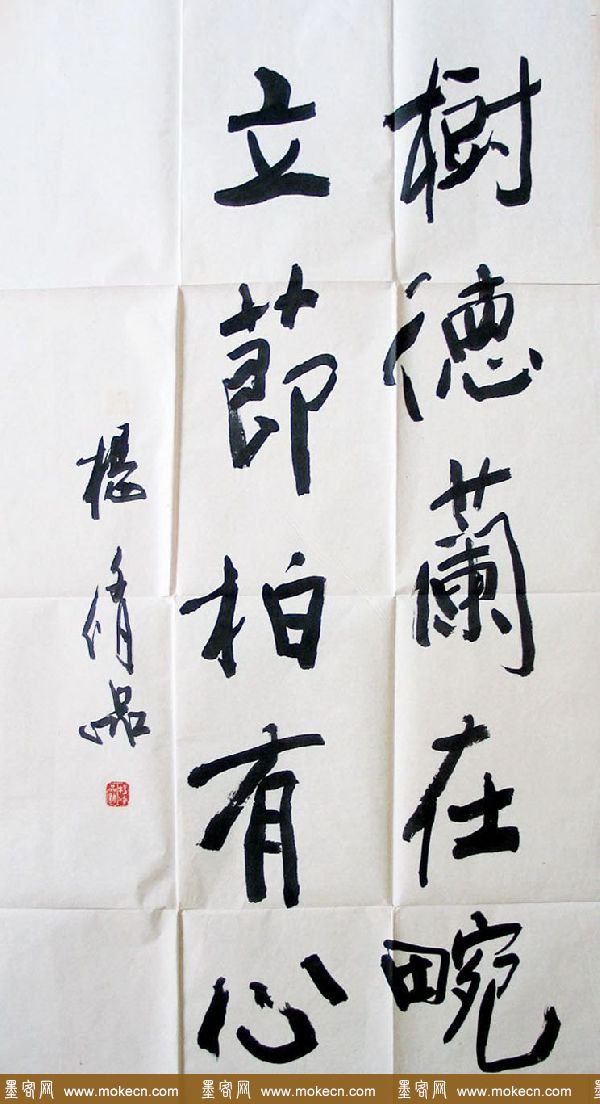 樹德蘭在畹
立節柏有心
楊脩品
墨客网 www.mokecn.com 墨客网 www.mokecn.com 墨客网 www.mokecn.com